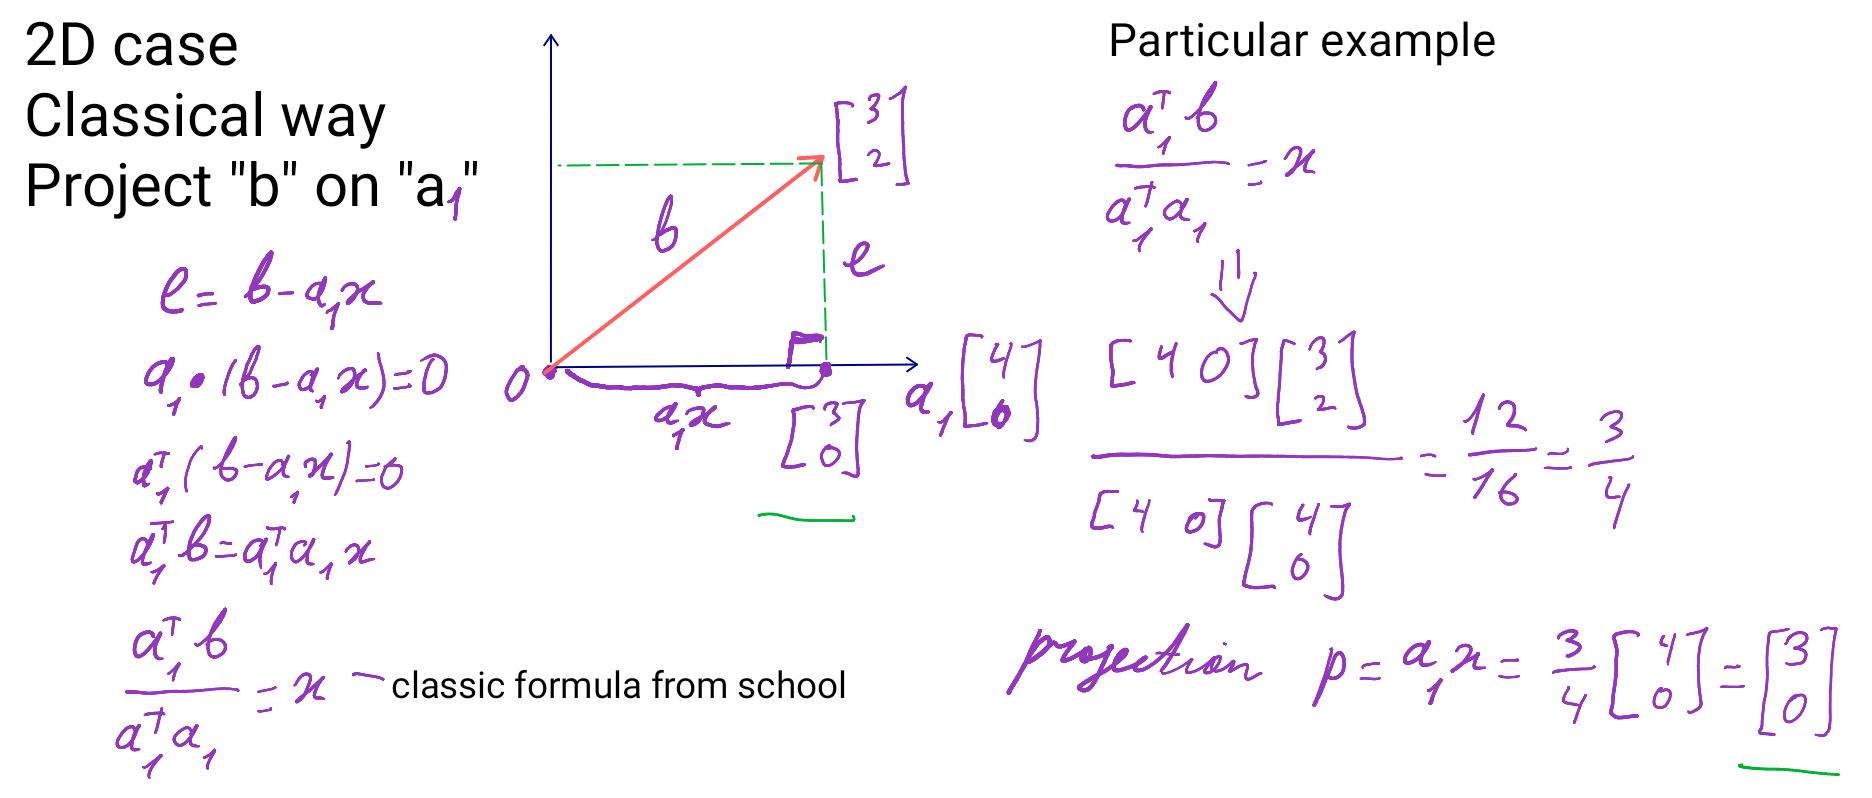 2D case
Classical way
Project "b" on "a₁"
e = b - a₁x
a₁ • (b - a₁x) = 0
a₁ᵀ(b - a₁x) = 0
a₁ᵀb = a₁ᵀa₁x
a₁ᵀb / a₁ᵀa₁ = x
classic formula from school
[3 2]
b
e
0
a₁x
[3 0]
a₁ [4 0]
Particular example
a₁ᵀb / a₁ᵀa₁ = x
⇓
[4 0][3 2] / [4 0][4 0] = 12/16 = 3/4
projection p = a₁x = 3/4 [4 0] = [3 0]